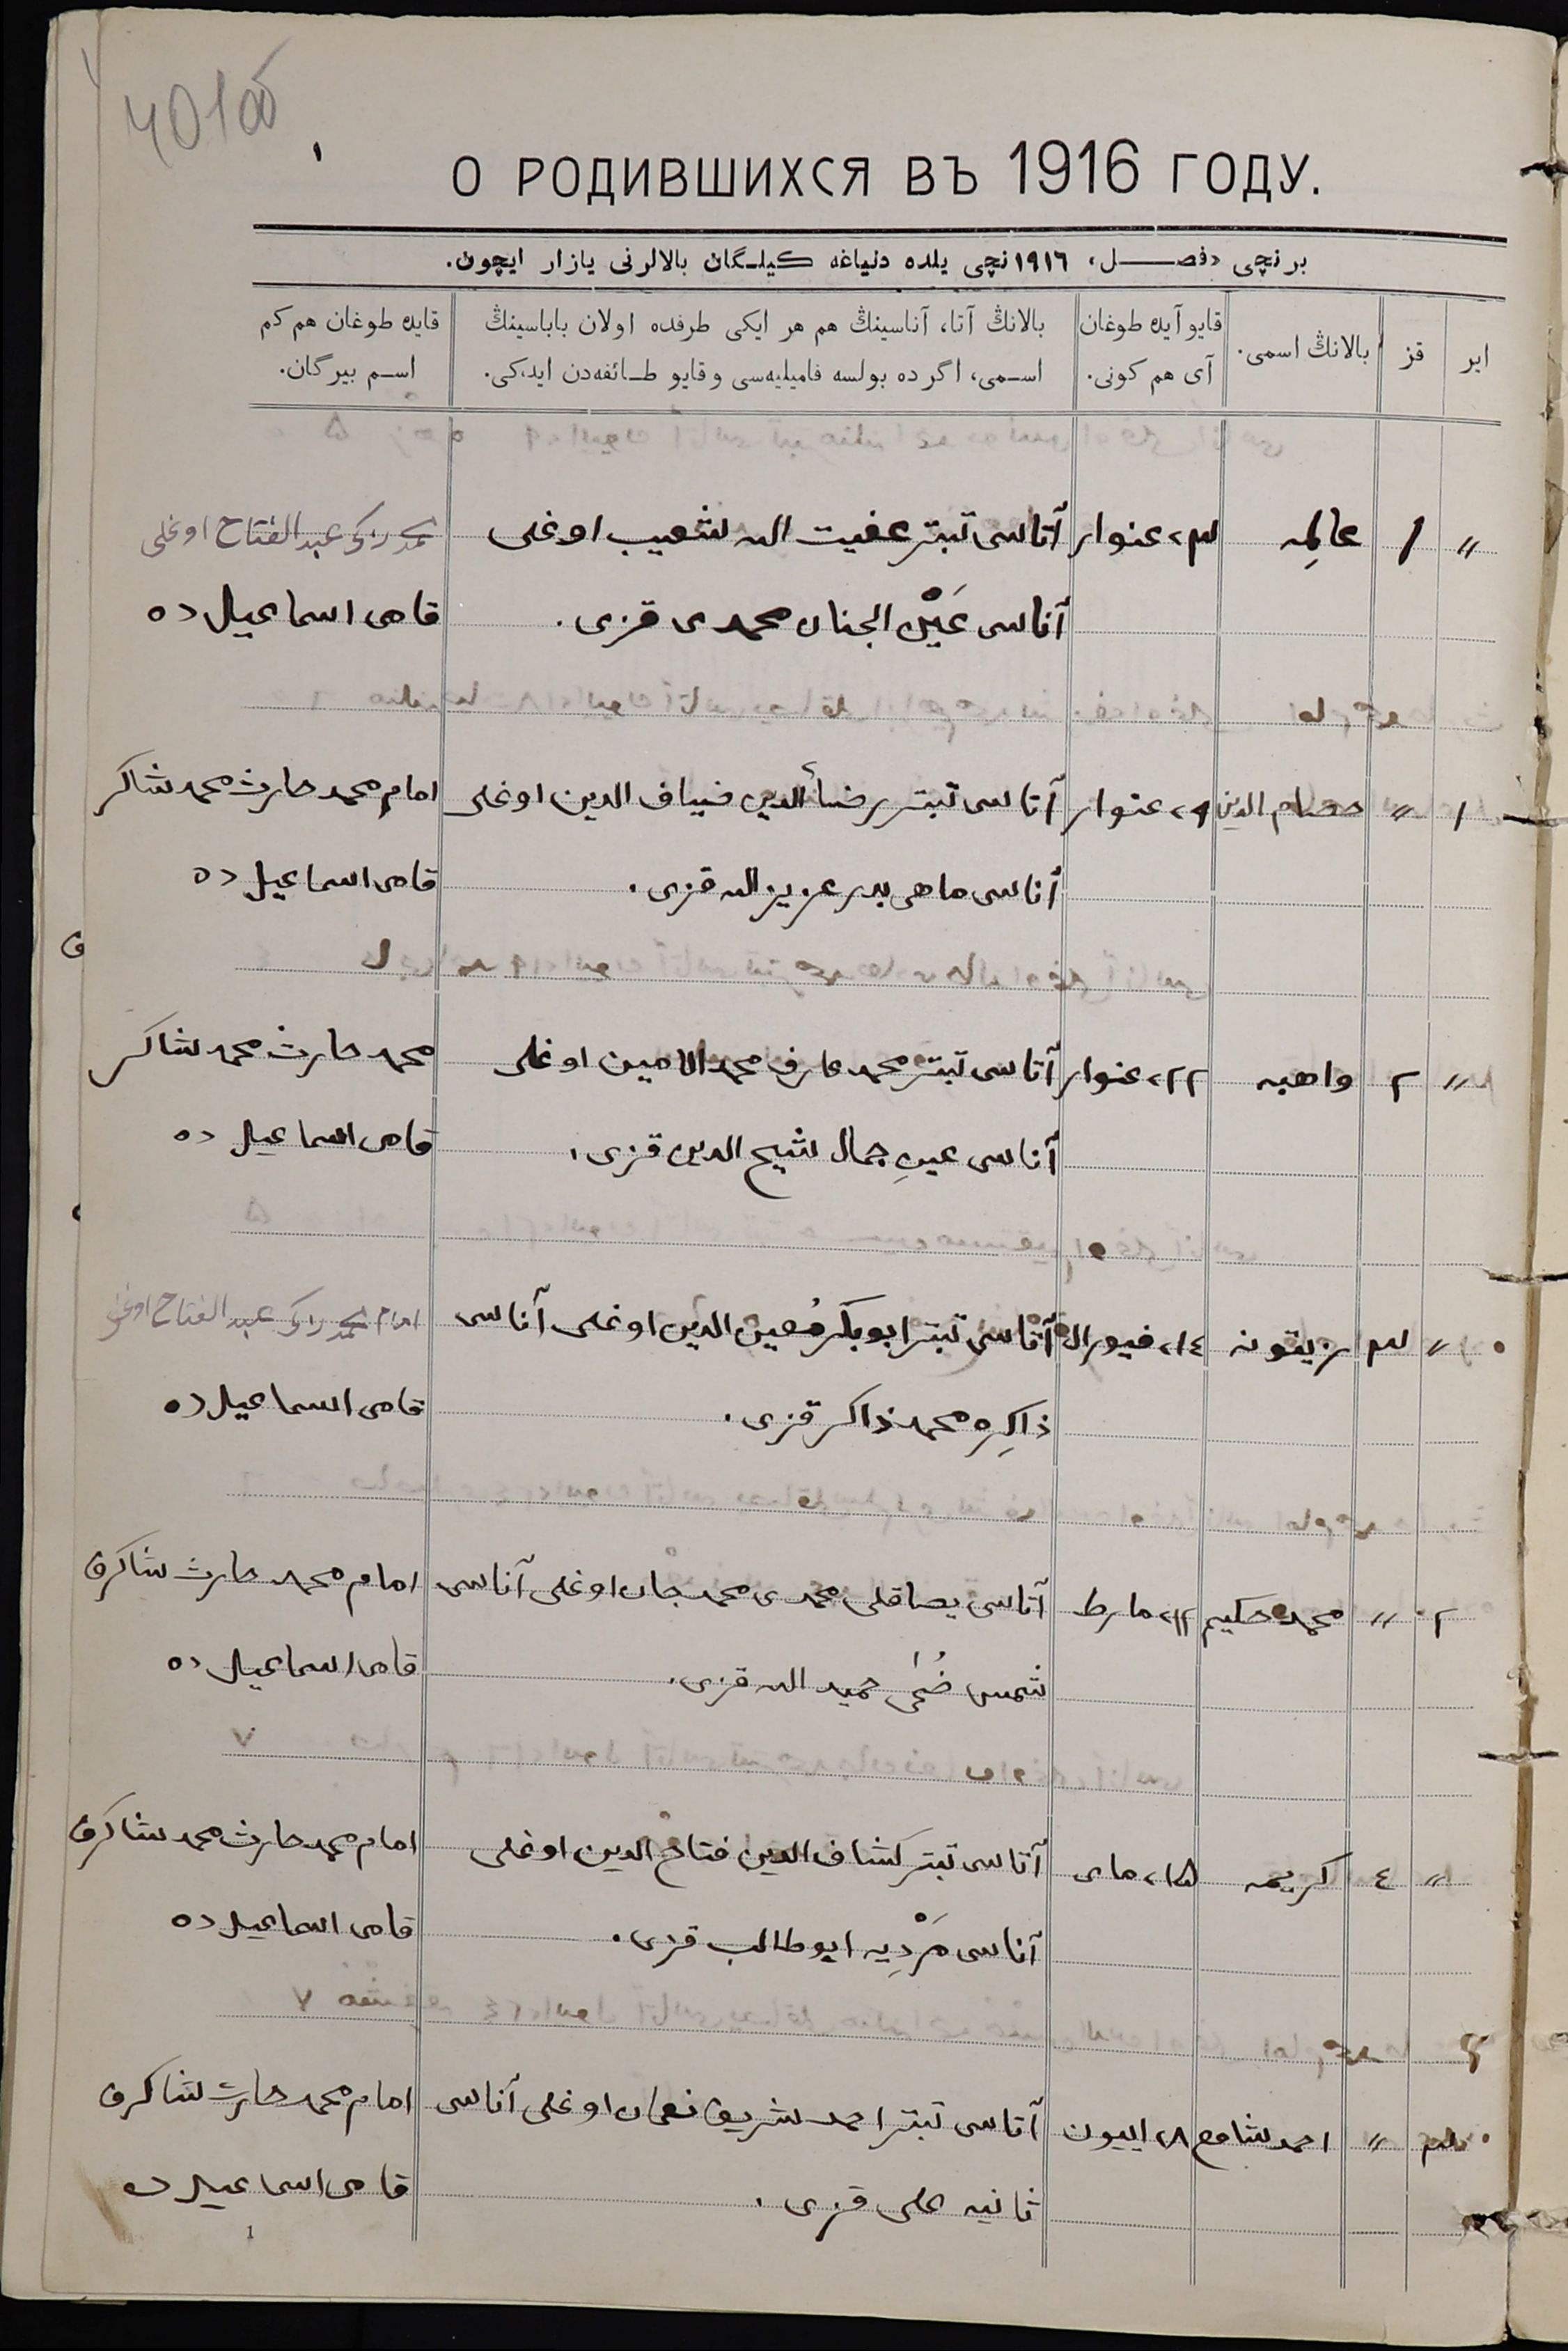 401об
О РОДИВШИХСЯ ВЪ 1916 ГОДУ.
برنچی «فصل» ١٩١٦ نچی یلده دنیاغه کیلگان بالالرنی یازار ایچون.
ایر
قز
بالانڭ اسمی.
قایو آیده طوغان
آی هم کونی.
بالانڭ آتا، آناسینڭ هم هر ایکی طرفده اولان باباسینڭ
اسمی، اگرده بولسه فامیلیه‌سی و قایو طائفه‌دن ایدکی.
قایده طوغان هم کم
اسم بیرگان.
〃 ١ عالِمه ٣، عنوار آتاسی تبتر عفیت الله شعیب اوغلی عبد الفتاح اوغلی
آناسی عَیْن الجنان محمدی قزی. قامی اسماعیل ده
١ 〃 حسام الدین ٩، عنوار آتاسی تبتر رضأالدین ضیاف الدین اوغلی امام محمد حارث محمد شاکر
آناسی ماهی بدر عزیز الله قزی. قامی اسماعیل ده
〃 ٢ واهبه ٢٢، عنوار آتاسی تبتر محمد عارف محمد الامین اوغلی محمد حارث محمد شاکر
آناسی عینِ جمال شیح الدین قزی. قامی اسماعیل ده
〃 ٣ زیتونه ١٤، فیورال آتاسی تبتر ابوبکر مُعین الدین اوغلی آناسی امام عبد الفتاح اوغلی
ذاکِره محمد ذاکر قزی. قامی اسماعیل ده
٢ 〃 محمد حکیم ١٢، مارط آتاسی یصاقلی محمدی محمدجان اوغلی آناسی امام محمد حارث شاکرف
شمس ضُحٰی حمید الله قزی. قامی اسماعیل ده
〃 ٤ کریمه ١٥، مای آتاسی تبتر کشاف الدین فتاح الدین اوغلی امام محمد حارث محمد شاکرف
آناسی مَرْدِیه ابوطالب قزی. قامی اسماعیل ده
٣ 〃 احمد ٨، اییون آتاسی تبتر احمد شریف نعمان اوغلی آناسی امام محمد حارث شاکرف
ثانیه علی قزی. قامی اسماعیل ده
1